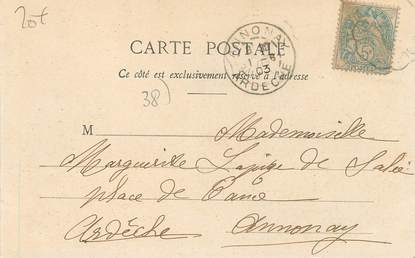 20t
CARTE POSTALE
Ce côté est exclusivement réservé à l'adresse
ANNONAY
03
ARDECHE
38)
M Mademoiselle
Marguerite de
place de
Ardèche Annonay